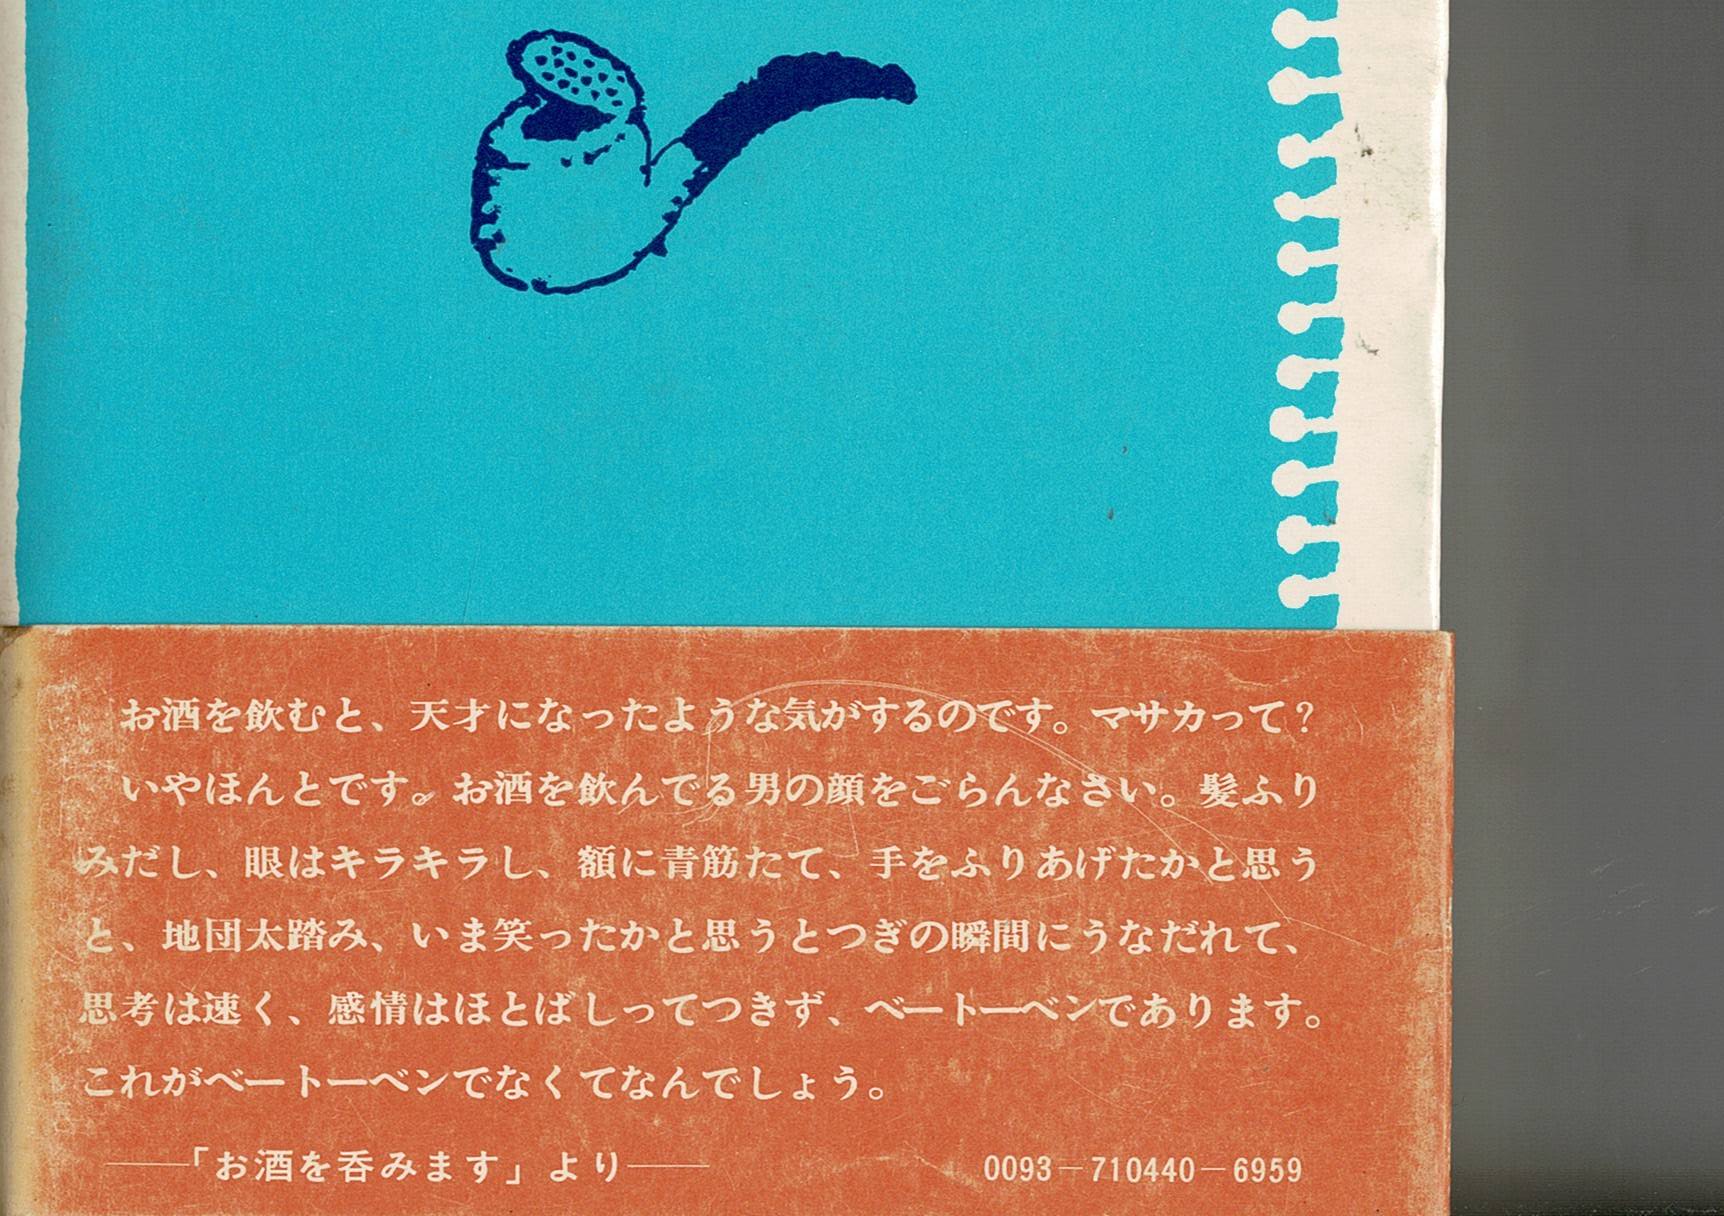 お酒を飲むと、天才になったような気がするのです。マサカって?
いやほんとです。お酒を飲んでる男の顔をごらんなさい。髪ふり
みだし、眼はキラキラし、額に青筋たて、手をふりあげたかと思う
と、地団太踏み、いま笑ったかと思うとつぎの瞬間にうなだれて、
思考は速く、感情はほとばしってつきず、ベートーベンであります。
これがベートーベンでなくてなんでしょう。
——「お酒を呑みます」より——
0093－710440－6959